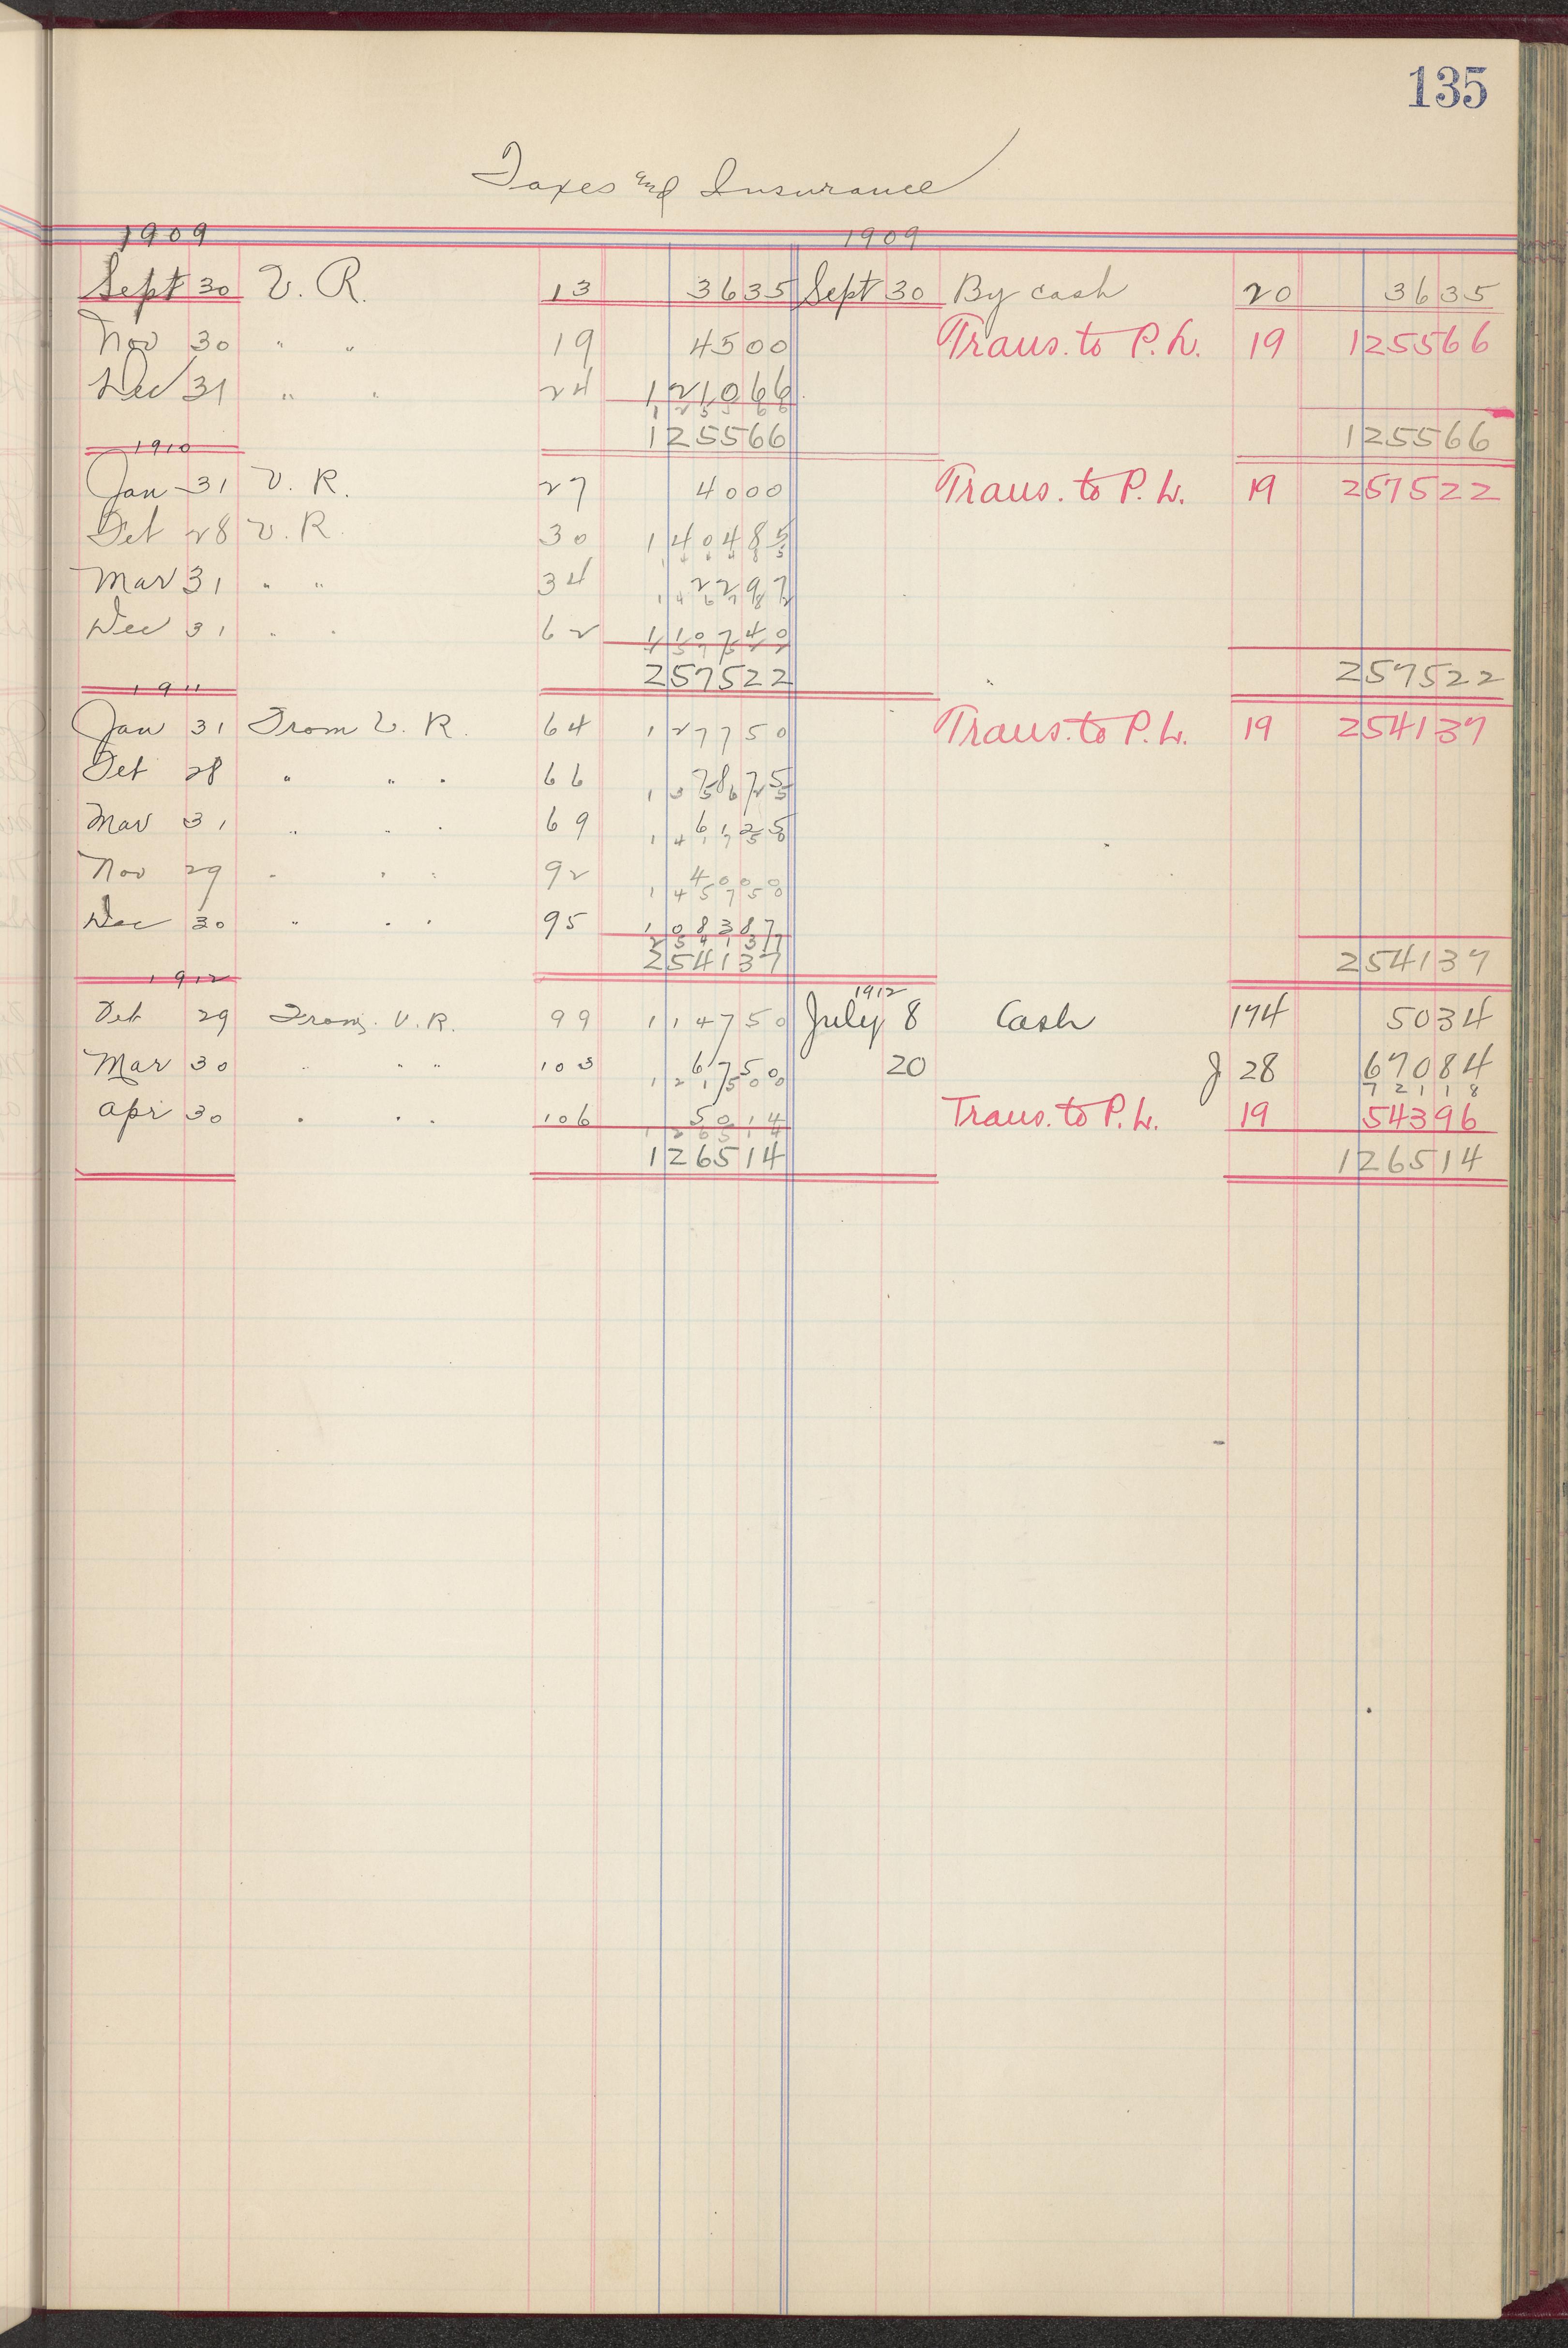 135
Taxes and Insurance
1909 1909
Sept 30 V. R. 13 3635 Sept 30 By cash 20 3635
Nov 30 " " 19 4500 Trans. to P. L. 19 125566
Dec 31 " " 24 121066
125566
125566 125566
1910
Jan 31 V. R. 27 4000 Trans. to P. L. 19 257522
Feb 28 V. R. 30 140485
144485
Mar 31 " " 34 2297
146782
Dec 31 " " 62 110740
257522
257522 257522
1911
Jan 31 From V. R. 64 127750 Trans. to P. L. 19 254137
Feb 28 " " " 66 7875
135625
Mar 31 " " " 69 6125
141750
Nov 29 " " " 92 4000
145750
Dec 30 " " " 95 108387
254137
254137 254137
1912 1912
Feb 29 From V. R. 99 114750 July 8 Cash 174 5034
Mar 30 " " " 103 6750 20 J 28 67084
121500 72118
Apr 30 " " " 106 5014 Trans. to P. L. 19 54396
126514
126514 126514